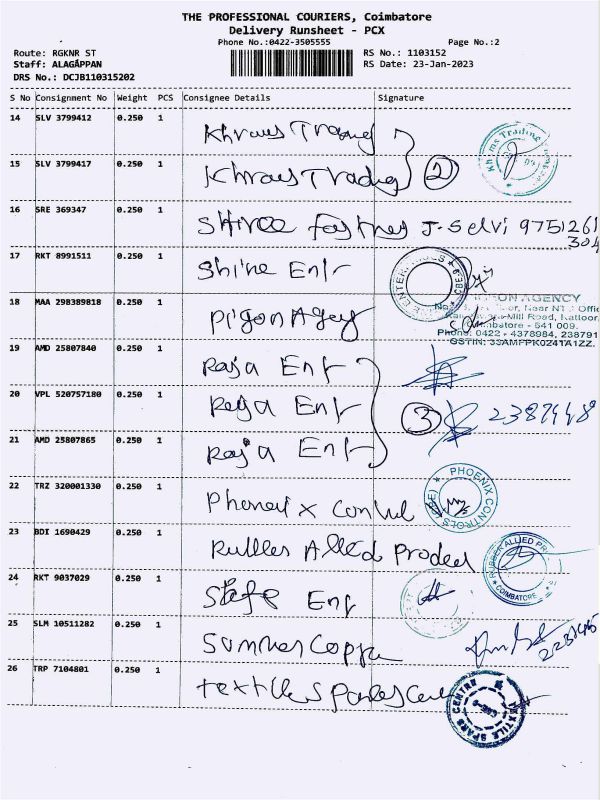 THE PROFESSIONAL COURIERS, Coimbatore
Delivery Runsheet - PCX
Phone No.:0422-3505555 Page No.:2
Route: RGKNR ST RS No.: 1103152
Staff: ALAGAPPAN RS Date: 23-Jan-2023
DRS No.: DCJB110315202
S No Consignment No Weight PCS Consignee Details Signature
14 SLV 3799412 0.250 1 Trading
15 SLV 3799417 0.250 1 Trading 2
16 SRE 369347 0.250 1 J. Selvi 9751261
304
17 RKT 8991511 0.250 1 Shine Entr
18 MAA 298389818 0.250 1 Pigon Agey
AGENCY
Mill Road, Nattoor,
Coimbatore - 641 009.
Phone: 0422 - 4378984, 238791
GSTIN: 33AMFPK0241A1ZZ.
19 AMD 25807840 0.250 1 Raja Entr
20 VPL 520757180 0.250 1 Raja Entr 3
21 AMD 25807865 0.250 1 Raja Entr
22 TRZ 320001330 0.250 1 Phoneix
PHOENIX CONTROLS
23 BDI 1690429 0.250 1 Rubber Allied
RUBBER ALLIED
COIMBATORE
24 RKT 9037029 0.250 1 Entr
25 SLM 10511282 0.250 1
26 TRP 7104801 0.250 1
TEXTILE SPARS CENTRE